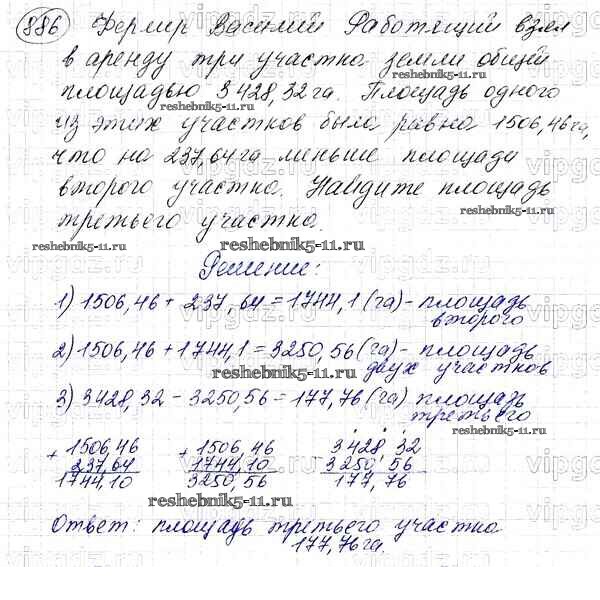 886 Фермер Василий Работящий взял
в аренду три участка земли общей
площадью 3428,32 га. Площадь одного
reshebnik5-11.ru
из этих участков была равна 1506,46 га,
что на 237,64 га меньше площади
второго участка. Найдите площадь
reshebnik5-11.ru
третьего участка.
reshebnik5-11.ru
reshebnik5-11.ru
Решение:
1) 1506,46 + 237,64 = 1744,1 (га) - площадь
второго
2) 1506,46 + 1744,1 = 3250,56 (га) - площадь
двух участков
reshebnik5-11.ru
3) 3428,32 - 3250,56 = 177,76 (га) площадь
третьего
reshebnik5-11.ru
+ 1506,46 + 1506,46 - 3428,32
237,64 1744,10 3250,56
1744,10 3250,56 177,76
reshebnik5-11.ru
Ответ: площадь третьего участка
177,76 га.